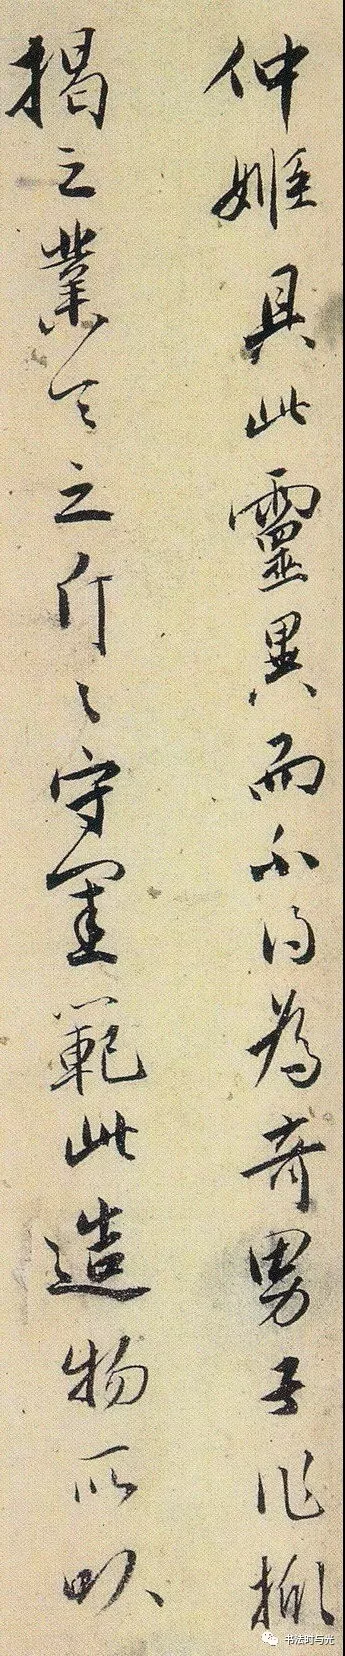 仲姬具此靈異而不得為奇男子作掀
揭之業令之斤〻守閨範此造物所以
书法时与光